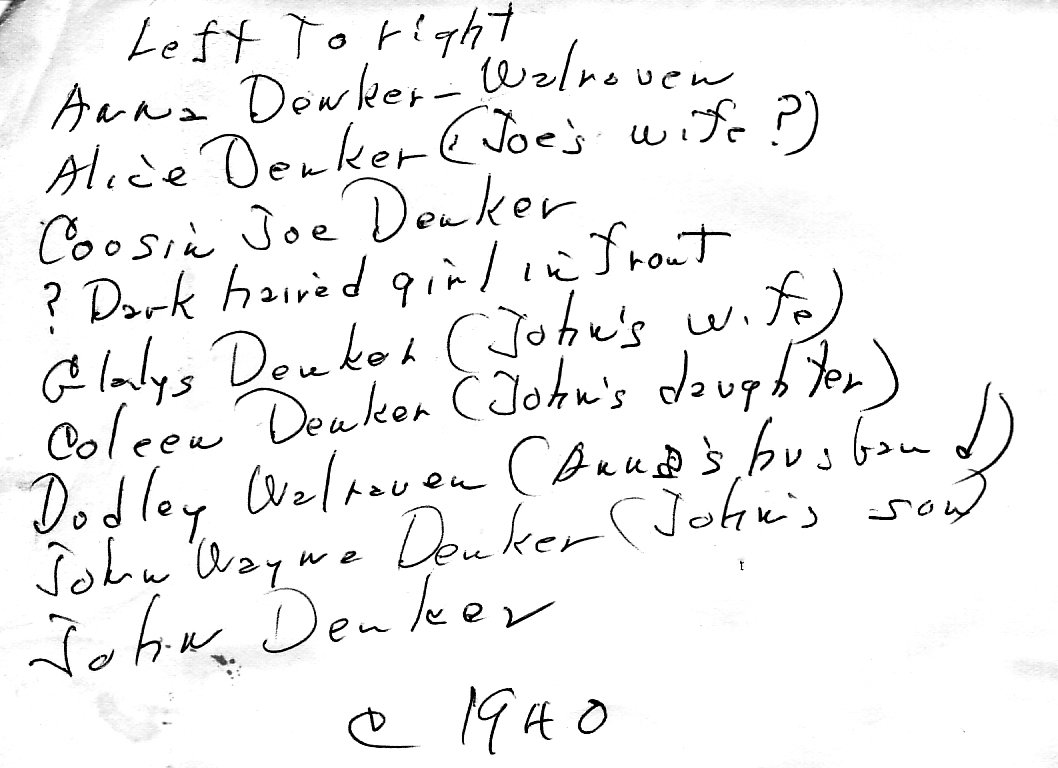 Left To right
Anna Denker-Walraven
Alice Denker (Joe's wife?)
Coosin Joe Denker
? Dark haired girl in front
Gladys Denker (John's wife)
Coleen Denker (John's daughter)
Dodley Walraven (Anna's husband)
John Wayne Denker (John's son)
John Denker
c 1940